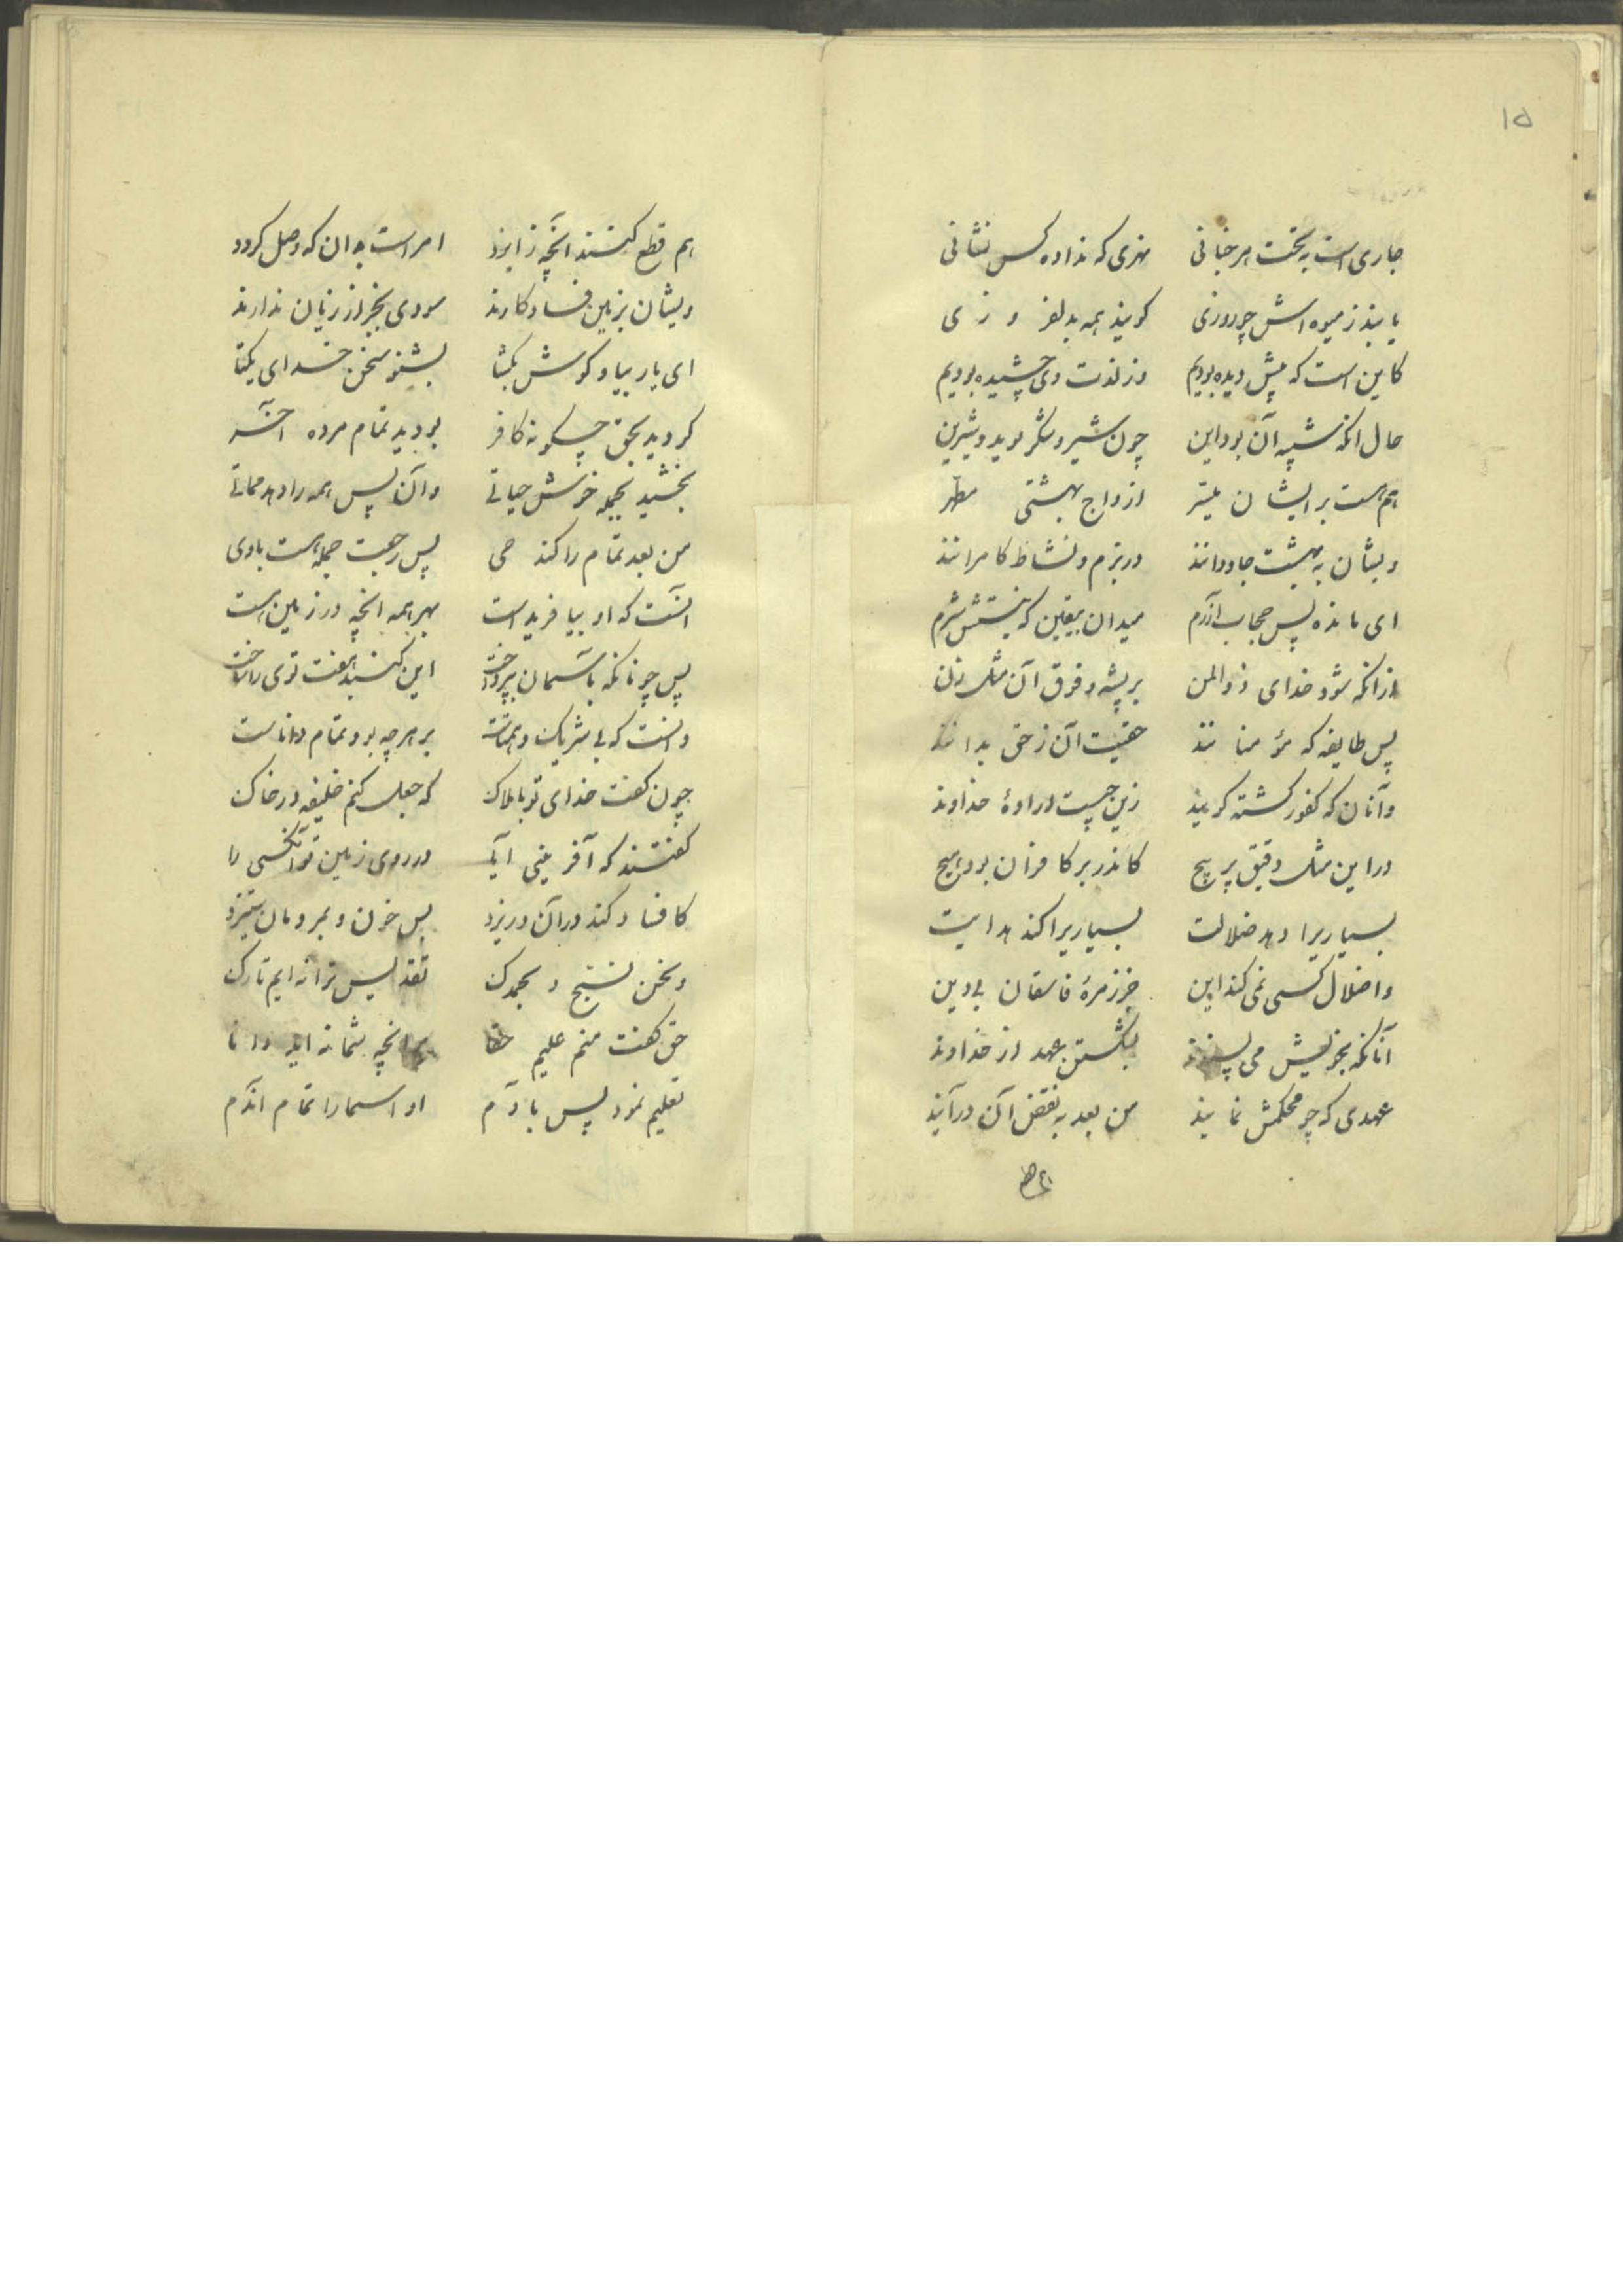 ۱۵
جاری است به تحت هر خبانی نهری که نداده کس نشانی
یابند ز میوه‌اش چو روزی کویند همه بدلفر و زی
کاین است که پیش دیده بودیم وز لذت وی چشیده بودیم
حال آنکه شبیه آن بود این چون شیر و شکر لوید و شیرین
هم هست بر ایشان میسّر ازواج بهشتی مطهّر
ویشان به بهشت جاودانند در بزم و نشاط کامرانند
ای مانده پس حجاب آزرم میدان بیقین که نیستش شرم
از آنکه شود خدای ذوالمن بر پشه و فوق آن مثل زن
پس طایفه که مؤمنانند حقیّت آن ز حق بدانند
وآنان که کفور کشته کویند زین چیست ارادهٔ خداوند
در این مثل دقیق پر پیچ کاندر بر کافران بود هیچ
بسیاریرا دهد ضلالت بسیاریرا کند هدایت
و اضلال کسی نمی کند این جز زمرهٔ فاسقان بی‌دین
آنانکه بخویش می پسندند بشکستن عهد از خداوند
عهدی که چو محکمش نمایند من بعد به نقض آن درآیند
هم قطع کنند آنچه ز ایزد امر است بدان که وصل کردد
ویشان بزمین فساد کارند سودی بجز از زیان ندارند
ای یار بیا و کوش بکشا بشنو سخن خدای یکتا
کردید بحق چکونه کافر بودید تمام مرده آخر
بخشید بجمله خوش حیاتی وآن پس همه را دهد مماتی
من بعد تمام را کند حی پس رجعت جمله هست باوی
آنست که او بیافرید است بهر همه آنچه در زمین است
پس چونانکه بآسمان بپرداخت این کنبد هفت توی را ساخت
وانست که بی شریک و همتاست بر هرچه بود تمام داناست
چون کفت خدای تو باملاک که جعل کنم خلیفه در خاک
کفتند که آفرینی آیا در روی زمین تو آنکسی را
کافساد کند در آن و ریزد بس خون و بمردمان ستیزد
و نحن نسبّح و بحمدک تقدیس ترا نه ایم تارک
حق کفت منم علیم حقا بر آنچه شما نه اید دانا
تعلیم نمود پس بآدم او اسما را تمام آندم